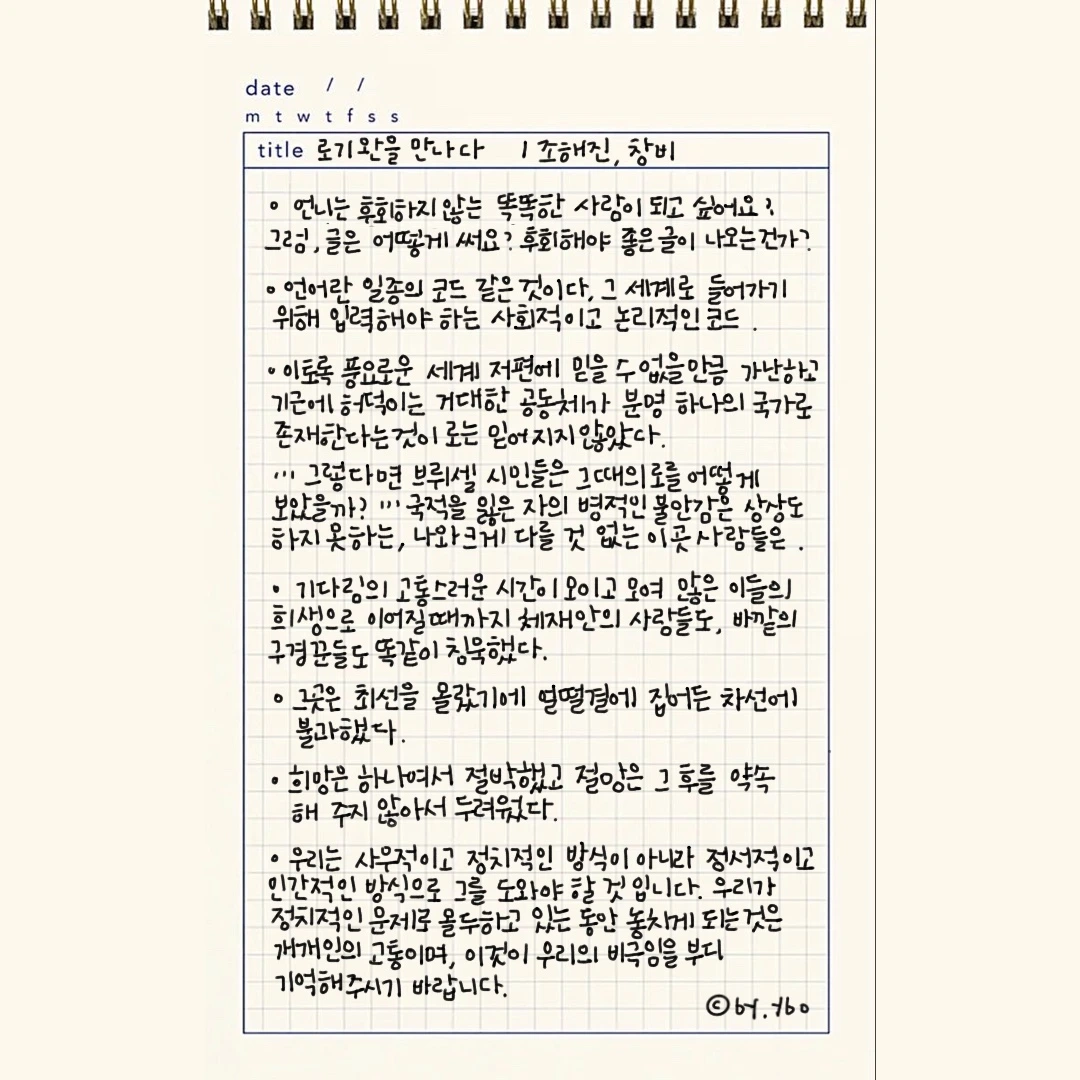 date / /
m t w t f s s
title 로기완을 만나다 / 조해진, 창비
• 언니는 후회하지 않는 똑똑한 사람이 되고 싶어요?
그럼, 글은 어떻게 써요? 후회해야 좋은 글이 나오는건가?
• 언어란 일종의 코드 같은 것이다, 그 세계로 들어가기
위해 입력해야 하는 사회적이고 논리적인 코드.
• 이토록 풍요로운 세계 저편에 믿을 수 없을만큼 가난하고
기근에 허덕이는 거대한 공동체가 분명 하나의 국가로
존재한다는 것이 로는 믿어지지 않았다.
... 그렇다면 브뤼셀 시민들은 그때의 로를 어떻게
보았을까? ... 국적을 잃은 자의 병적인 불안감은 상상도
하지 못하는, 나와 크게 다를 것 없는 이곳 사람들은.
• 기다림의 고통스러운 시간이 모이고 모여 많은 이들의
희생으로 이어질때까지 체재안의 사람들도, 바깥의
구경꾼들도 똑같이 침묵했다.
• 그곳은 최선을 몰랐기에 얼떨결에 집어든 차선에
불과했다.
• 희망은 하나여서 절박했고 절망은 그 후를 약속
해 주지 않아서 두려웠다.
• 우리는 사무적이고 정치적인 방식이 아니라 정서적이고
인간적인 방식으로 그를 도와야 할 것입니다. 우리가
정치적인 문제로 몰두하고 있는 동안 놓치게 되는것은
개개인의 고통이며, 이것이 우리의 비극임을 부디
기억해주시기 바랍니다.
©by.ybo